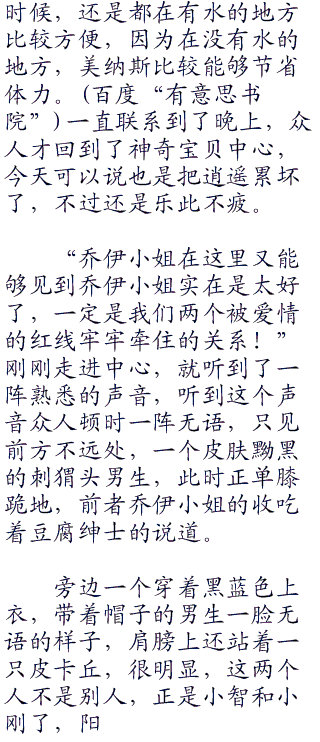 时候，还是都在有水的地方
比较方便，因为在没有水的
地方，美纳斯比较能够节省
体力。(百度“有意思书
院”)一直联系到了晚上，众
人才回到了神奇宝贝中心，
今天可以说也是把逍遥累坏
了，不过还是乐此不疲。
“乔伊小姐在这里又能
够见到乔伊小姐实在是太好
了，一定是我们两个被爱情
的红线牢牢牵住的关系！”
刚刚走进中心，就听到了一
阵熟悉的声音，听到这个声
音众人顿时一阵无语，只见
前方不远处，一个皮肤黝黑
的刺猬头男生，此时正单膝
跪地，前者乔伊小姐的收吃
着豆腐绅士的说道。
旁边一个穿着黑蓝色上
衣，带着帽子的男生一脸无
语的样子，肩膀上还站着一
只皮卡丘，很明显，这两个
人不是别人，正是小智和小
刚了，阳